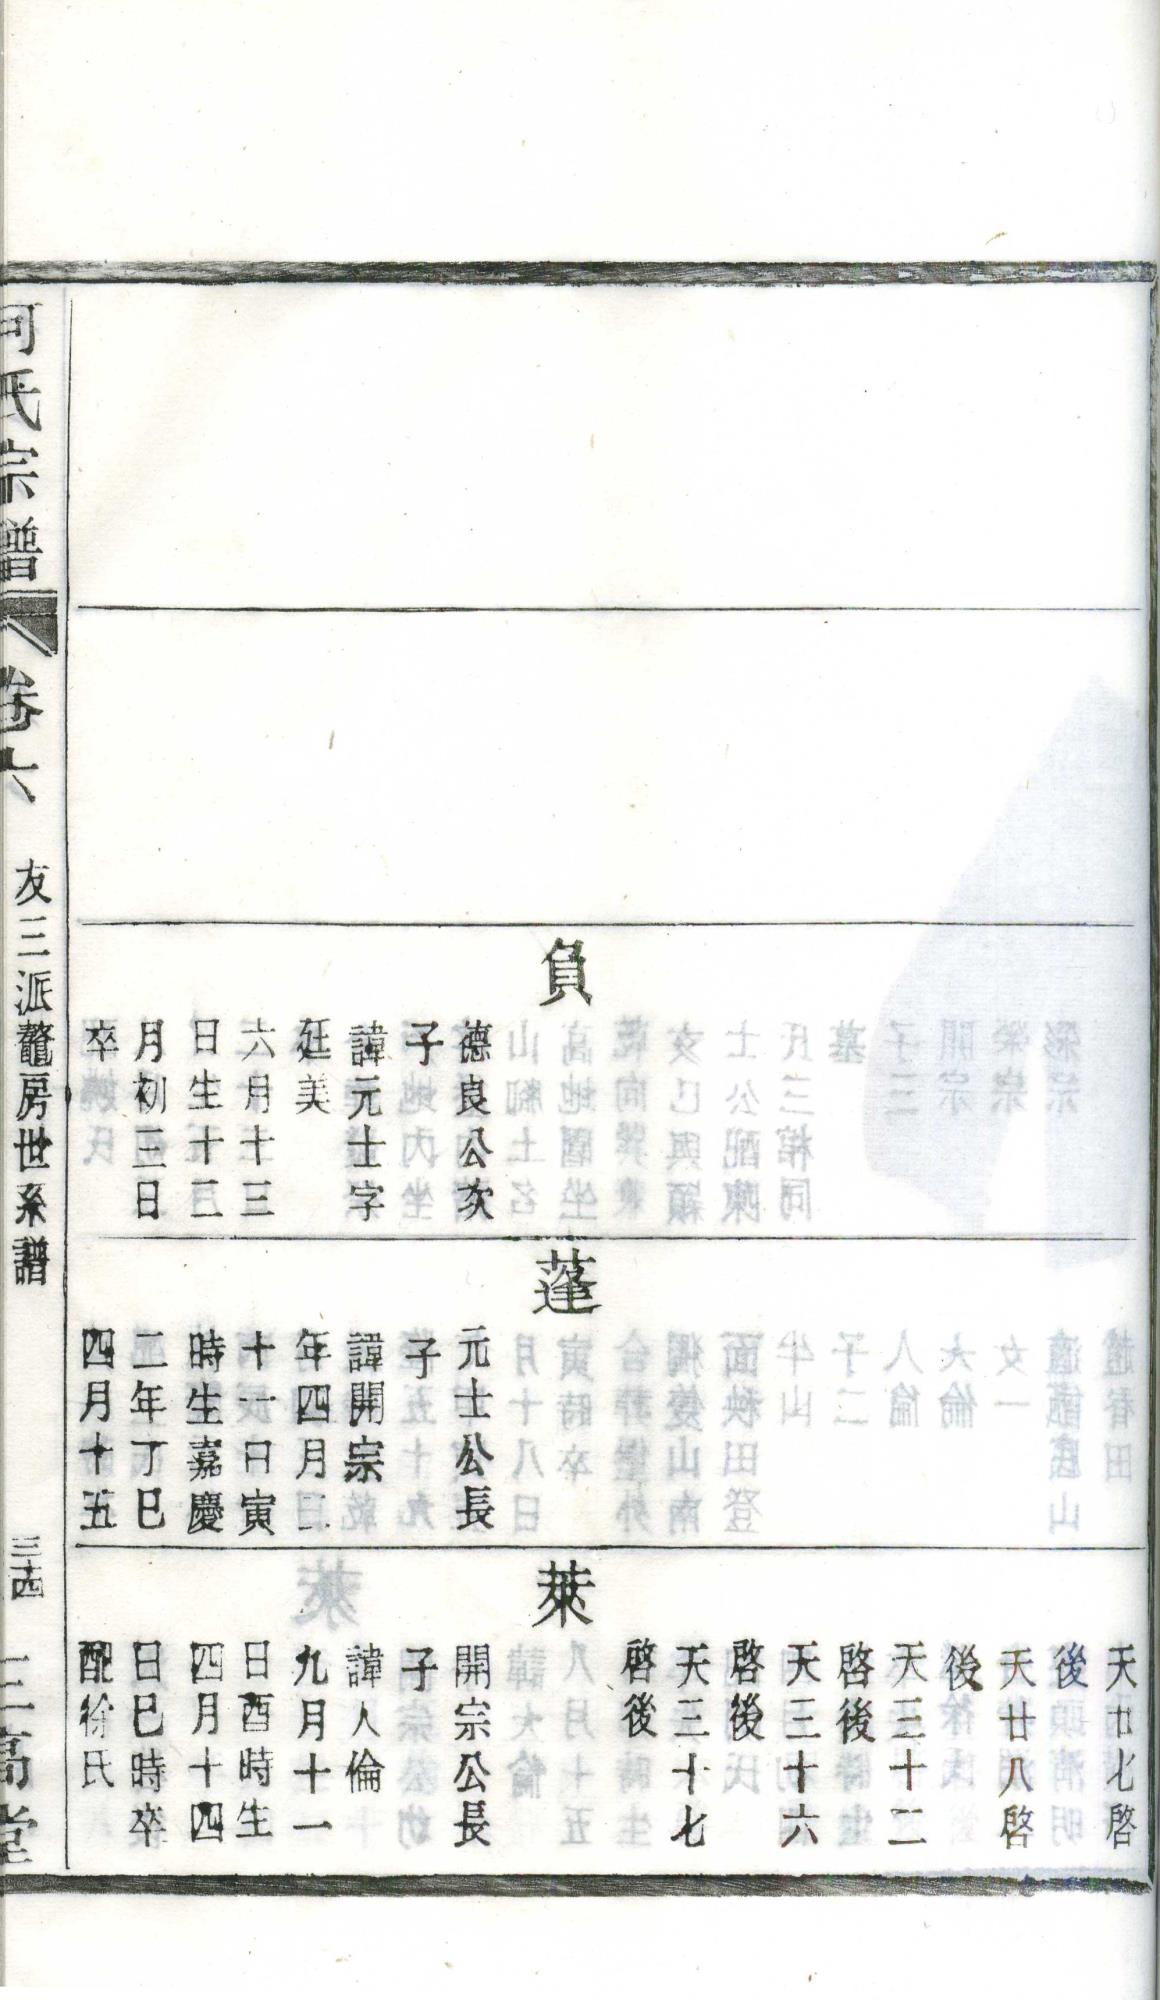 負
德良公次
子
諱元士字
廷美
六月十三
日生十二
月初三日
卒
蓬
元士公長
子
諱開宗
年四月二
十一日寅
時生嘉慶
二年丁巳
四月十五
天廿七啓
後
天廿八啓
後
天三十二
啓後
天三十六
啓後
天三十七
啓後
萊
開宗公長
子
諱人倫
九月十一
日酉時生
四月十四
日巳時卒
配徐氏
何氏宗譜
卷六
友三派鼇房世系譜
三十四
三高堂